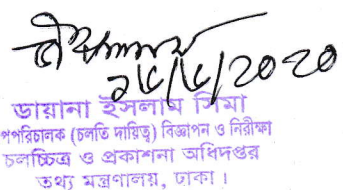 ১৫/৫/2020
ডায়ানা ইসলাম সিমা
পপরিচালক (চলতি দায়িত্ব) বিজ্ঞাপন ও নিরীক্ষা
চলচ্চিত্র ও প্রকাশনা অধিদপ্তর
তথ্য মন্ত্রণালয়, ঢাকা।